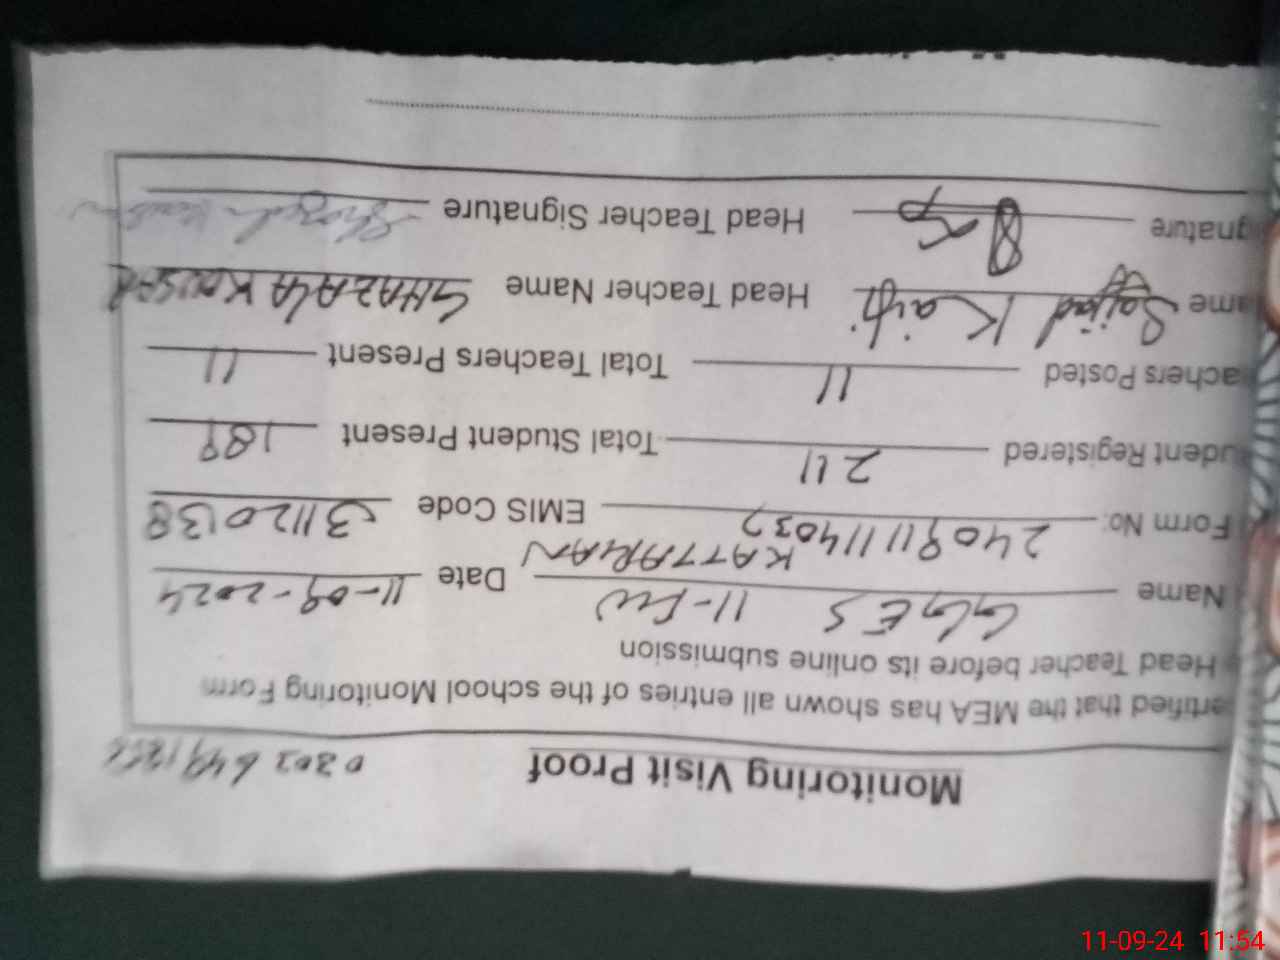 Monitoring Visit Proof 0302 6491256
ertified that the MEA has shown all entries of the school Monitoring Form
Head Teacher before its online submission
Name GGES 11-FW KATTARIAN Date 11-09-2024
Form No. 240911114037 EMIS Code 31120138
udent Registered 211 Total Student Present 189
achers Posted 11 Total Teachers Present 11
ame Sajjad Kaifi Head Teacher Name GHAZALA KOUSAR
gnature Head Teacher Signature
11-09-24 11:54